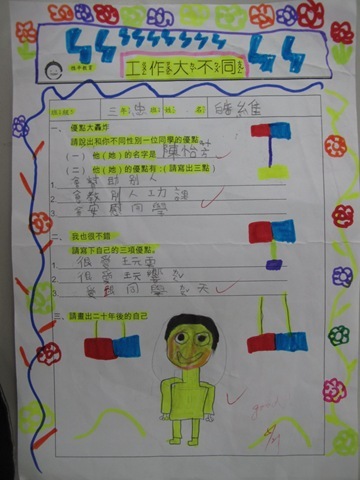 性平教育
工作大不同
三年忠班 姓名:皓維
一、 優點大轟炸
請說出和你不同性別一位同學的優點
(一) 他(她)的名字是 陳怡芳
(二) 他(她)的優點有:(請寫出三點)
1 會幫助別人
2 會教別人功課
3 會安慰同學
二、我也很不錯
請寫下自己的三項優點。
1 很愛玩
2 很愛玩
3 同學 天
三、請畫出二十年後的自己
good